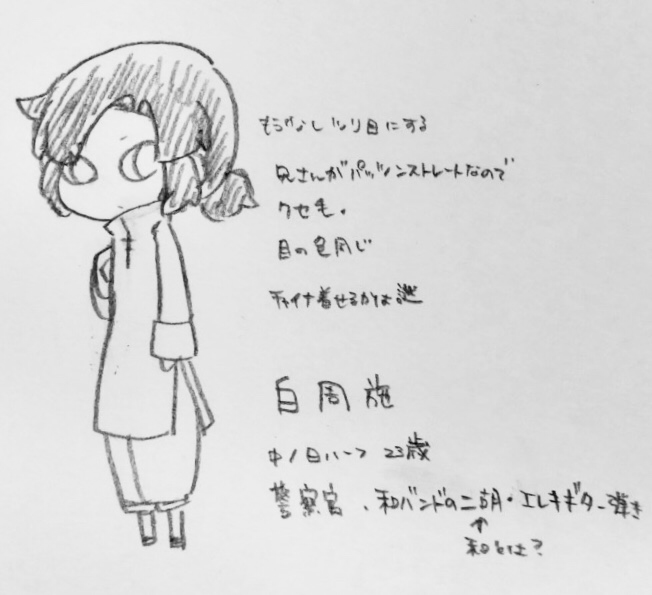 もう少しツリ目にする
兄さんがパッツンストレートなので
クセ毛。
目の色同じ
チャイナ着せるかは謎
白周施
中/日ハーフ 23歳
警察官、和バンドの二胡・エレキギター弾き
↑
和とは?